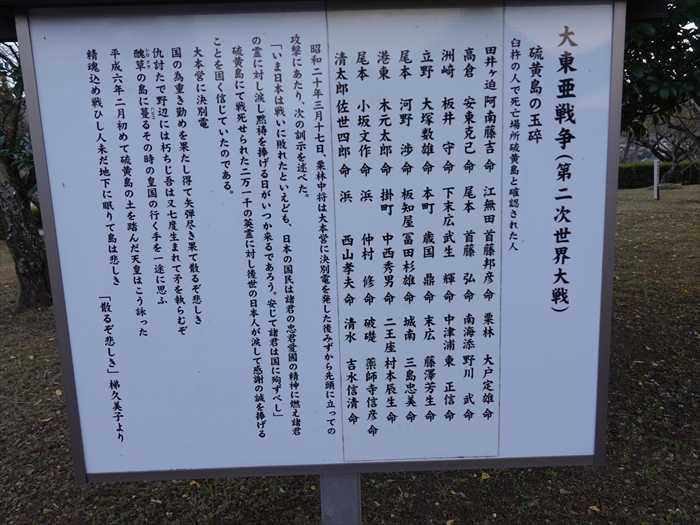 大東亜戦争(第二次世界大戦)
硫黄島の玉砕
臼杵の人で死亡場所硫黄島と確認された人
田井ヶ迫 阿南藤吉 命 江無田 首藤邦彦 命 栗林 大戸定雄 命
高倉 安東克己 命 尾本 首藤 弘 命 南海添 野川 武 命
洲崎 板井 守 命 下末広 武生 輝 命 中津浦 東 正信 命
立野 大塚数雄 命 本町 歳国 鼎 命 末広 藤澤芳生 命
尾本 河野 渉 命 板知屋 冨田杉雄 命 城南 三島忠美 命
港東 木元太郎 命 掛町 中西秀男 命 二王座 村本辰生 命
尾本 小坂文作 命 浜 仲村 修 命 破磋 薬師寺信彦 命
清太郎 佐世四郎 命 浜 西山孝夫 命 清水 吉水信清 命
昭和二十年三月十七日、栗林中将は大本営に決別電を発した後みずから先頭に立っての
攻撃にあたり、次の訓示を述べた。
「いま日本は戦いに敗れたといえども、日本の国民は諸君の忠君愛国の精神に燃え諸君
の霊に対し涙し黙祷を捧げる日がいつか来るであろう。安じて諸君は国に殉ずべし」
硫黄島にて戦死せられた二万一千の英霊に対し後世の日本人が涙して感謝の誠を捧げる
ことを固く信じていたのである。
大本営に決別電
国の為重き勤めを果たし得て矢弾尽き果て散るぞ悲しき
仇討たで野辺には朽ちじ吾は又七度生まれて矛を執らむぞ
醜草の島に蔓るその時の皇国の行く手を一途に思ふ
平成六年二月初めて硫黄島の土を踏んだ天皇はこう詠った
精魂込め戦ひし人未だ地下に眠りて島は悲しき 「散るぞ悲しき」梯久美子より